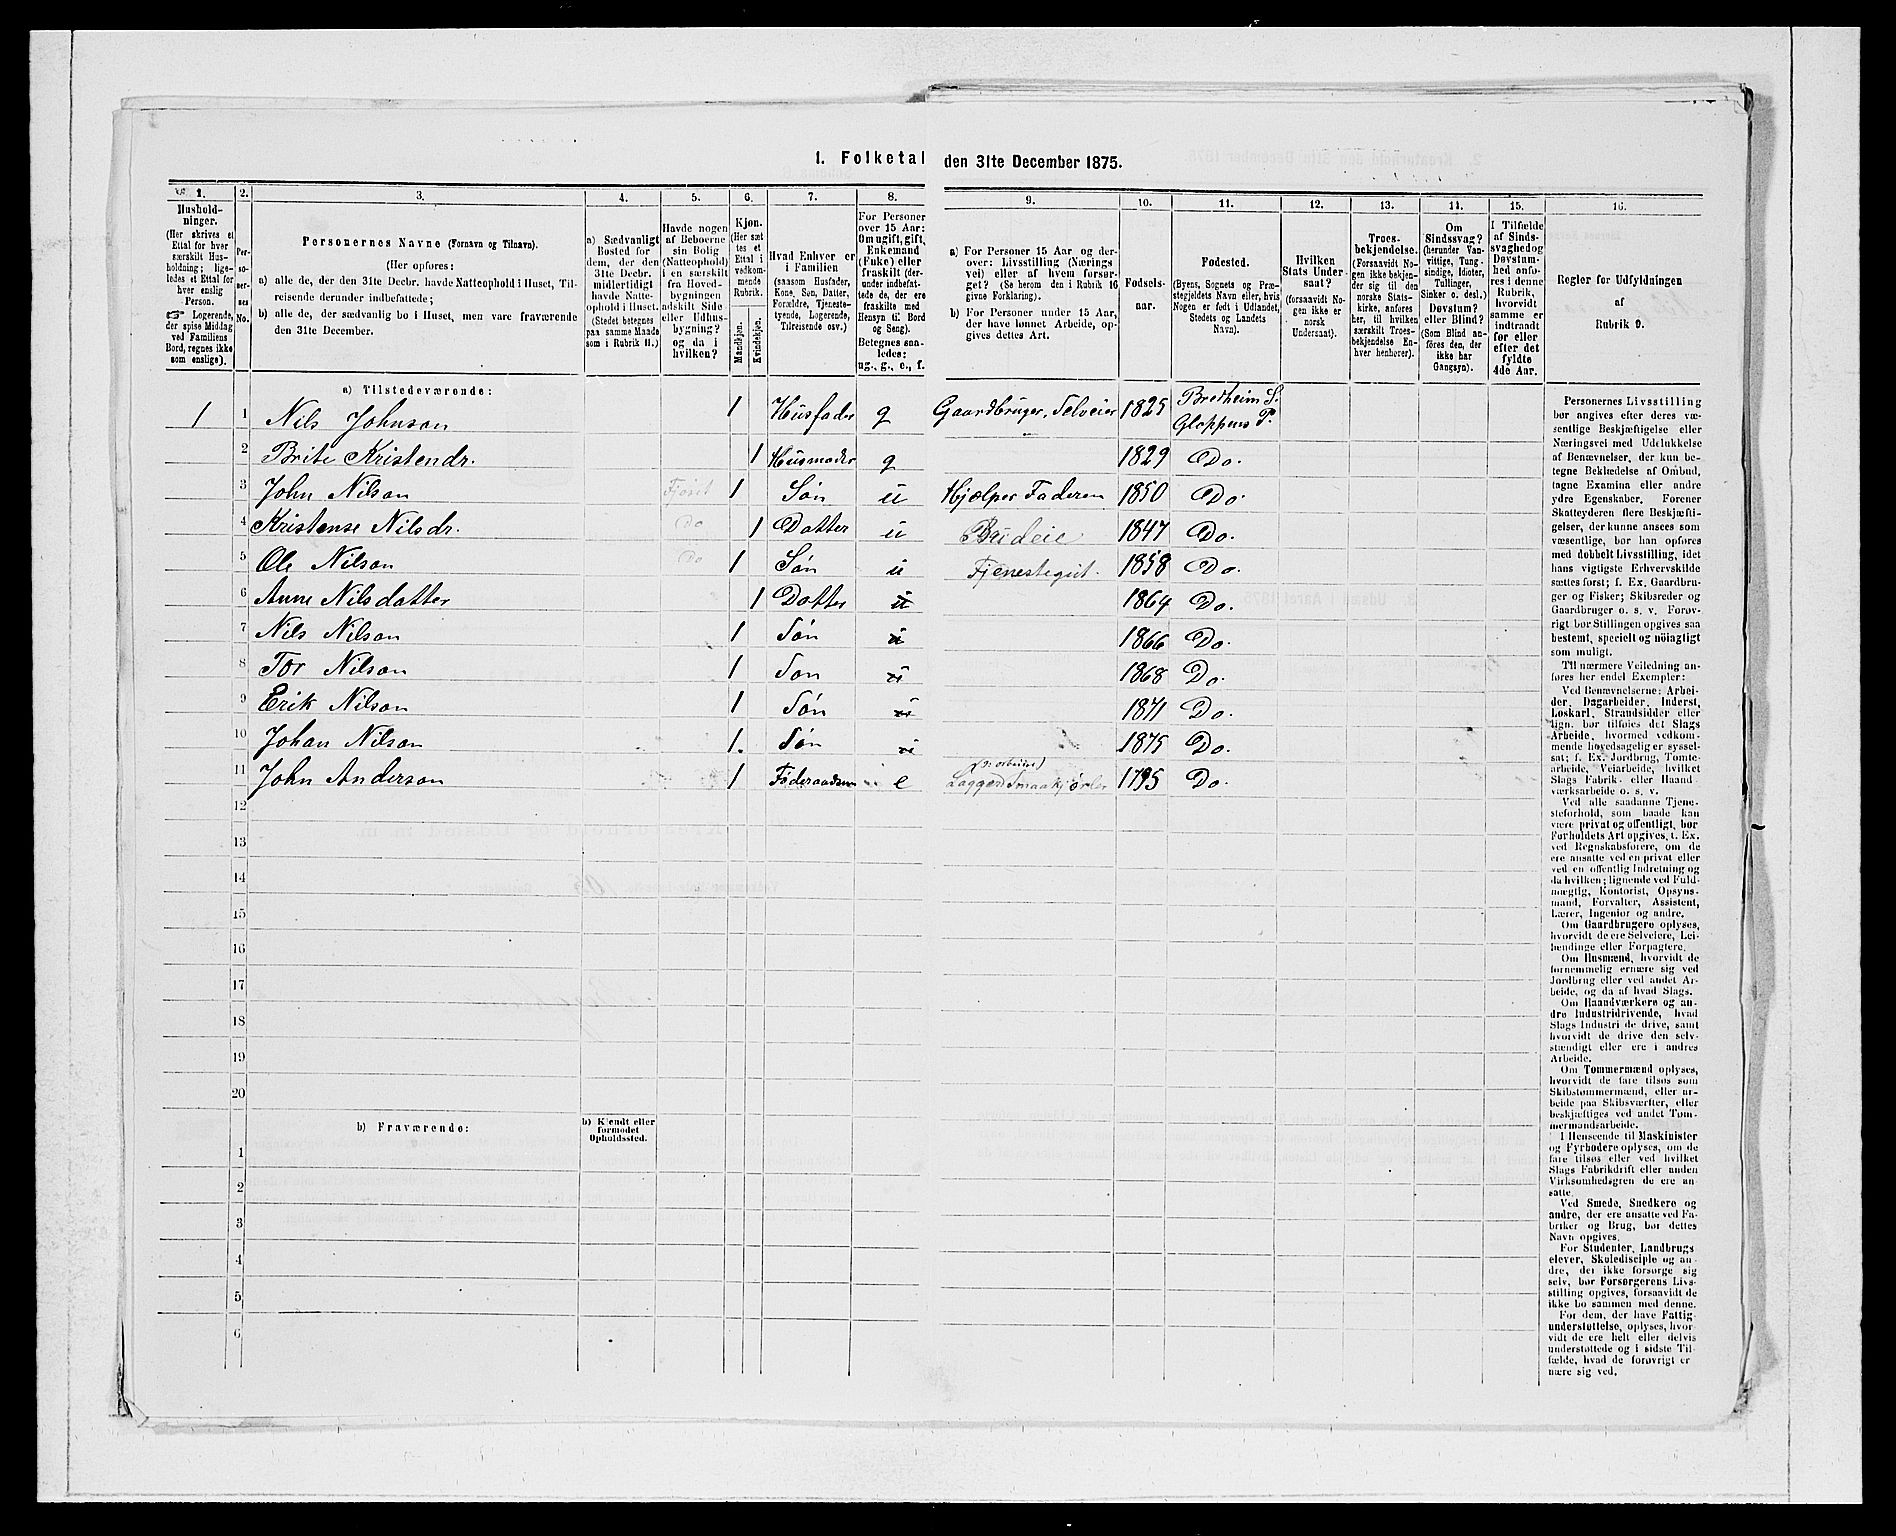 1. Folketal den 31te December 1875.
1. 2. 3. 4. 5. 6. 7. 8. 9. 10. 11. 12. 13. 14. 15. 16.
Hushold-
ninger.
(Her skrives et
Ettal for hver
særskilt Hus-
holdning; lige-
ledes et Ettal for
hver enslig
Person.
☞ Logerende,
der spise Middag
ved Familiens
Bord, regnes ikke
som enslige).
Per-
so-
ner-
nes
No.
Personernes Navne (Fornavn og Tilnavn).
(Her opføres:
a) alle de, der den 31te Decbr. havde Natteophold i Huset, Til-
reisende derunder indbefattede;
b) alle de, der sædvanlig bo i Huset, men vare fraværende
den 31te December.
a) Sædvanligt
Bosted for
dem, der den
31te Decbr.
midlertidigt
havde Natte-
ophold i Huset.
(Stedet betegnes
paa samme Maade
som i Rubrik 11.)
Havde nogen
af Beboerne
sin Bolig
(Natteophold)
i en særskilt
fra Hoved-
bygningen
adskilt Side-
eller Udhus-
bygning?
og da i
hvilken?
Kjøn.
(Her sæt
tes et
Ettal i
vedkom-
mende
Rubrik.
Mandkjøn.
Kvindekjøn.
Hvad Enhver er
i Familien
(saasom Husfader,
Kone, Søn, Datter,
Forældre, Tjeneste-
tyende, Logerende,
Tilreisende osv.)
For Personer
over 15 Aar:
Om ugift, gift,
Enkemand
(Enke) eller
fraskilt (der-
under indbefat-
tede de, der ere
fraskilte med
Hensyn til Bord
og Seng).
Betegnes saa-
ledes:
ug., g., e., f.
a) For Personer 15 Aar og der-
over: Livsstilling (Nærings
vei) eller af hvem forsør-
get? (Se herom den i Rubrik 16
givne Forklaring).
b) For Personer under 15 Aar,
der have lønnet Arbeide, op-
gives dettes Art.
Fødsels-
aar.
Fødested.
(Byens, Sognets og Præ-
stegjeldets Navn eller, hvis
Nogen er født i Udlandet,
Stedets og Landets
Navn).
Hvilken
Stats Under-
saat?
(forsaavidt No-
gen ikke er
norsk
Undersaat).
Troes-
bekjendelse.
(Forsaavidt No-
gen ikke bekjen-
der sig til den
norske Stats-
kirke, anføres
her, til hvilken
særskilt Troes-
bekjendelse En-
hver henhører).
Om
Sindssvag?
(herunder Van-
vittige, Tung-
sindige, Idioter,
Tullinger,
Sinker o. desl.)
Døvstum?
eller Blind?
(Som Blind an-
føres den, der
ikke har
Gangsyn).
I Tilfælde
af Sinds-
svaghed og
Døvstum-
hed anfø-
res i denne
Rubrik,
hvorvidt
samme er
indtraadt
før eller
efter det
fyldte
4de Aar.
Regler for Udfyldningen
af
Rubrik 9.
a) Tilstedeværende:
1 1 Nils Johnson 1 Husfader g Gaardbruger, Selveier 1825 Bredheim S. Gloppens P.
2 Brite Kristendr. 1 Husmoder g 1829 Do.
3 John Nilson Fjøset 1 Søn u Hjælper Faderen 1850 Do.
4 Kristense Nilsdr. Do 1 Datter u Budeie 1847 Do.
5 Ole Nilson Do 1 Søn u Tjenestegut. 1858 Do.
6 Anne Nilsdatter 1 Datter u 1864 Do.
7 Nils Nilson 1 Søn u 1866 Do.
8 Tor Nilson 1 Søn u 1868 Do.
9 Erik Nilson 1 Søn u 1871 Do.
10 Johan Nilson 1. Søn u 1875 Do.
11 John Anderson 1 Føderaadsm e Lagger Smaakjørler 1795 Do.
12
13
14
15
16
17
18
19
20
b) Fraværende:
b) Kjendt eller
formodet
Opholdssted.
1
2
3
4
5
6
Personernes Livsstilling
bør angives efter deres væ-
sentlige Beskjæftigelse eller
Næringsvei med Udelukkelse
af Benævnelser, der kun be-
tegne Beklædelse af Ombud,
tagne Examina eller andre
ydre Egenskaber. Forener
Skatteyderen flere Beskjæfti-
gelser, der kunne ansees som
væsentlige, bør han opføres
med dobbelt Livsstilling, idet
hans vigtigste Erhvervskilde
sættes først; f. Ex. Gaardbru-
ger og Fisker; Skibsreder og
Gaardbruger o. s. v. Forøv-
rigt bør Stillingen opgives saa
bestemt, specielt og nöiagtigt
som muligt.
Til nærmere Veiledning an-
føres her endel Exempler:
Ved Benævnelserne: Arbei-
der, Dagarbeider, Inderst,
Løskarl, Strandsidder eller
lign. bør tilføies det Slags
Arbeide, hvormed vedkom-
mende hovedsagelig er syssel-
sat; f. Ex. Jordbrug, Tomte-
arbeide, Veiarbeide, hvilket
Slags Fabrik- eller Haand-
værksarbeide o. s. v.
Ved alle saadanne Tjene-
steforhold, som baade kan
være privat og offentligt, bør
Forholdets Art opgives, t. Ex.
ved Regnskabsførere, om de
ere ansatte ved en privat eller
ved en offentlig Indretning og
da hvilken; lignende ved Fuld-
mægtig, Kontorist, Opsyns-
mand, Forvalter, Assistent,
Lærer, Ingeniør og andre.
Om Gaardbrugere oplyses,
hvorvidt de ere Selveiere, Lei-
lændinge eller Forpagtere.
Om Husmænd, hvorvidt de
fornemmelig ernære sig ved
Jordbrug eller ved andet Ar-
beide, og da af hvad Slags.
Om Haandværkere og an-
dre Industridrivende, hvad
Slags Industri de drive, samt
hvorvidt de drive den selv-
stændigt eller ere i andres
Arbeide.
Om Tømmermænd oplyses,
hvorvidt de fare tilsøs som
Skibstømmermænd, eller ar-
beide paa Skibsværfter, eller
beskjæftiges ved andet Tøm-
mermandsarbeide.
I Henseende til Maskinister
og Fyrbødere oplyses, om de
fare tilsøs eller ved hvilket
Slags Fabrikdrift eller anden
Virksomhedsgren de ere an-
satte.
Ved Smede, Snedkere og
andre, der ere ansatte ved Fa-
briker og Brug, bør dettes
Navn opgives.
For Studenter, Landbrugs
elever, Skoledisciple og an-
dre, der ikke forsørge sig
selv, bør Forsørgerens Livs-
stilling opgives, forsaavidt de
ikke bo sammen med denne.
For dem, der have Fattig-
understøttelse, oplyses, hvor-
vidt de ere helt eller delvis
understøttede og i sidste Til-
fælde, hvad de forøvrigt er
nære sig ved.